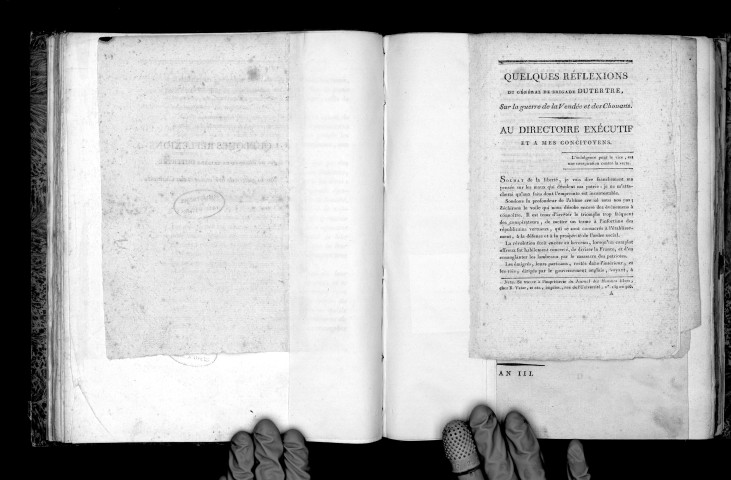 QUELQUES RÉFLEXIONS
DU GÉNÉRAL DE BRIGADE DUTERTRE,
Sur la guerre de la Vendée et des Chouans.
AU DIRECTOIRE EXÉCUTIF
ET A MES CONCITOYENS.
L'indulgence pour le vice, est
une conspiration contre la vertu.
SOLDAT de la liberté, je vais dire franchement ma
pensée sur les maux qui désolent ma patrie; je ne m'atta-
cherai qu'aux faits dont l'empreinte est incontestable.
Sondons la profondeur de l'abîme creusé sous nos pas;
déchirons le voile qui nous dérobe encore des événemens à
connoître. Il est tems d'arrêter le triomphe trop fréquent
des conspirateurs, de mettre un terme à l'infortune des
républicains vertueux, qui se sont consacrés à l'établisse-
ment, à la défense et à la prospérité de l'ordre social.
La révolution étoit encore au berceau, lorsqu'un complot
affreux fut habilement concerté, de diviser la France, et d'en
ensanglanter les lambeaux par le massacre des patriotes.
Les émigrés, leurs partisans, restés dans l'intérieur, et
les rois, dirigés par le gouvernement anglais, voyant, à
A
AN III.